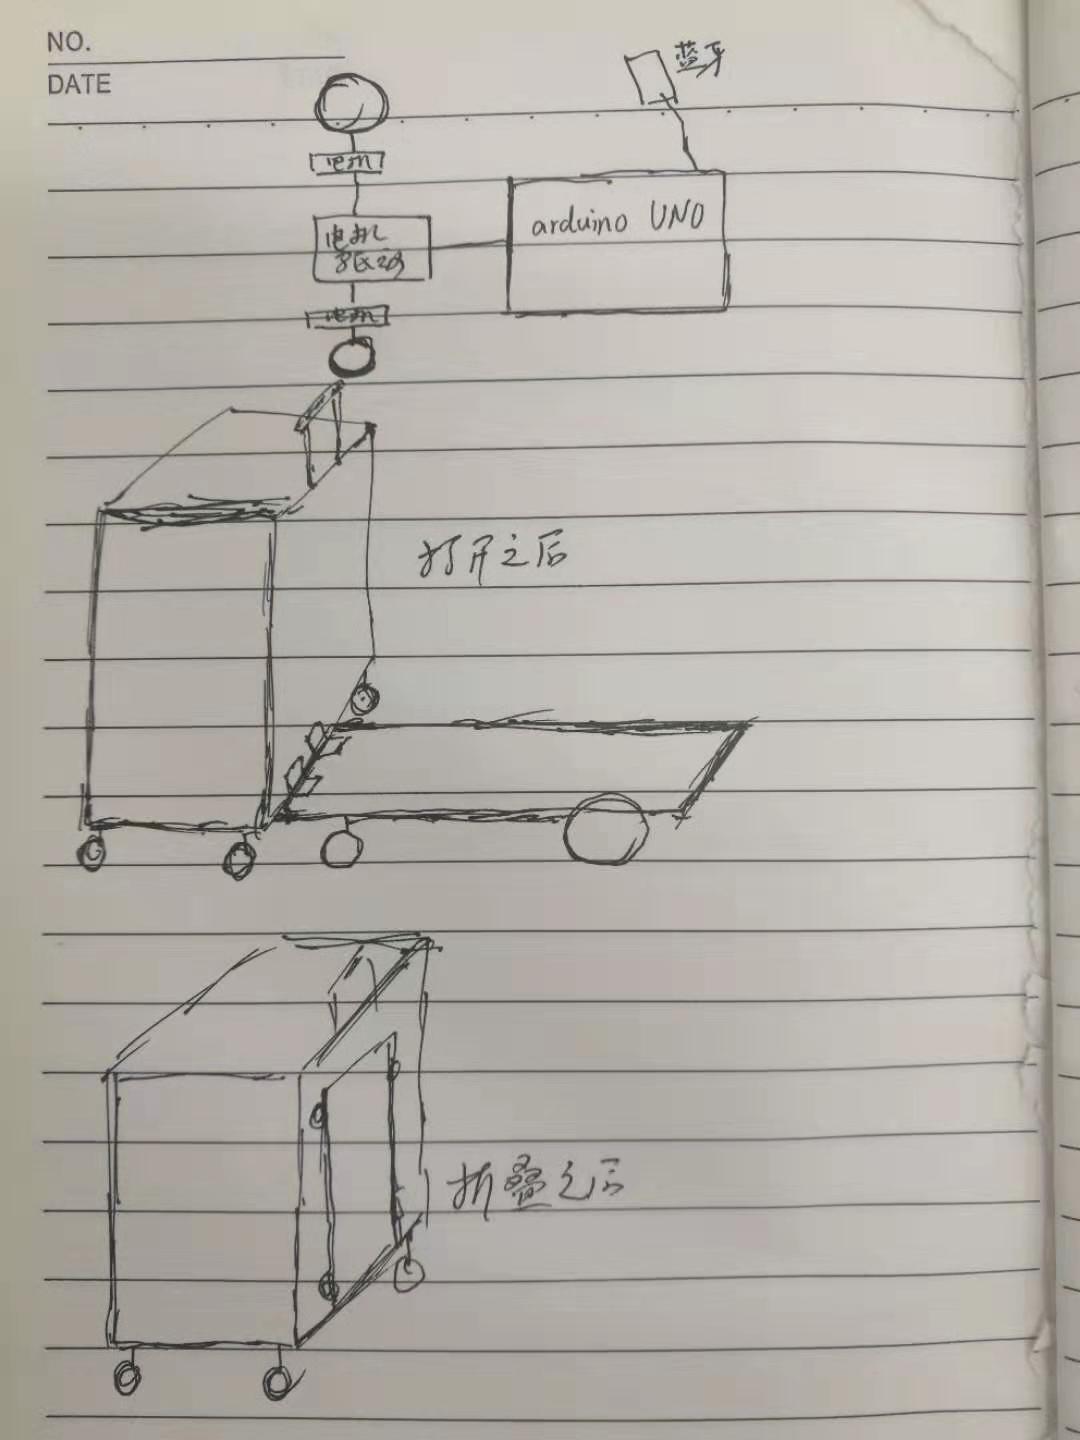 NO.
DATE
蓝牙
电机
arduino UNO
电机
驱动
电机
打开之后
折叠之后